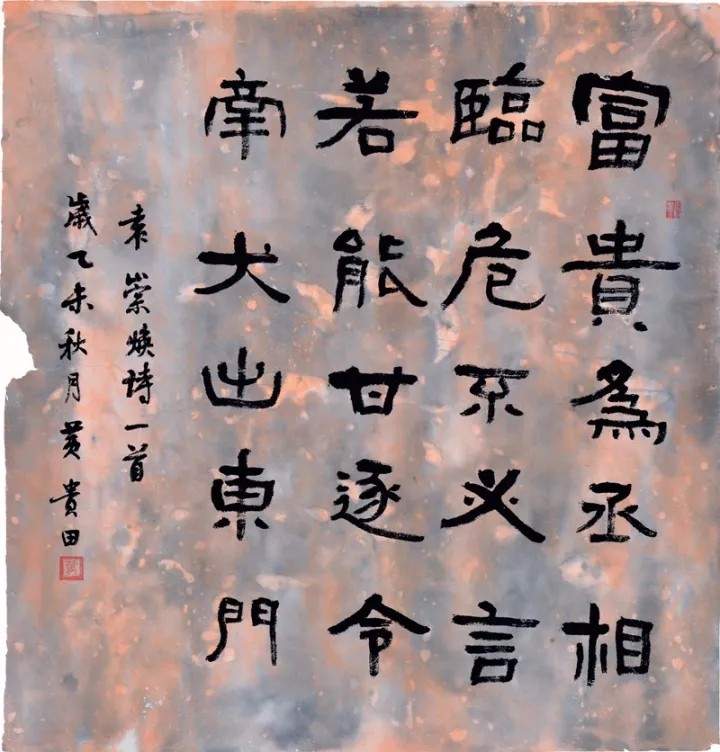 富貴為丞相
臨危不必言
若能甘逐令
牽犬出東門
袁崇煥詩一首
歲乙未秋月黃貴田